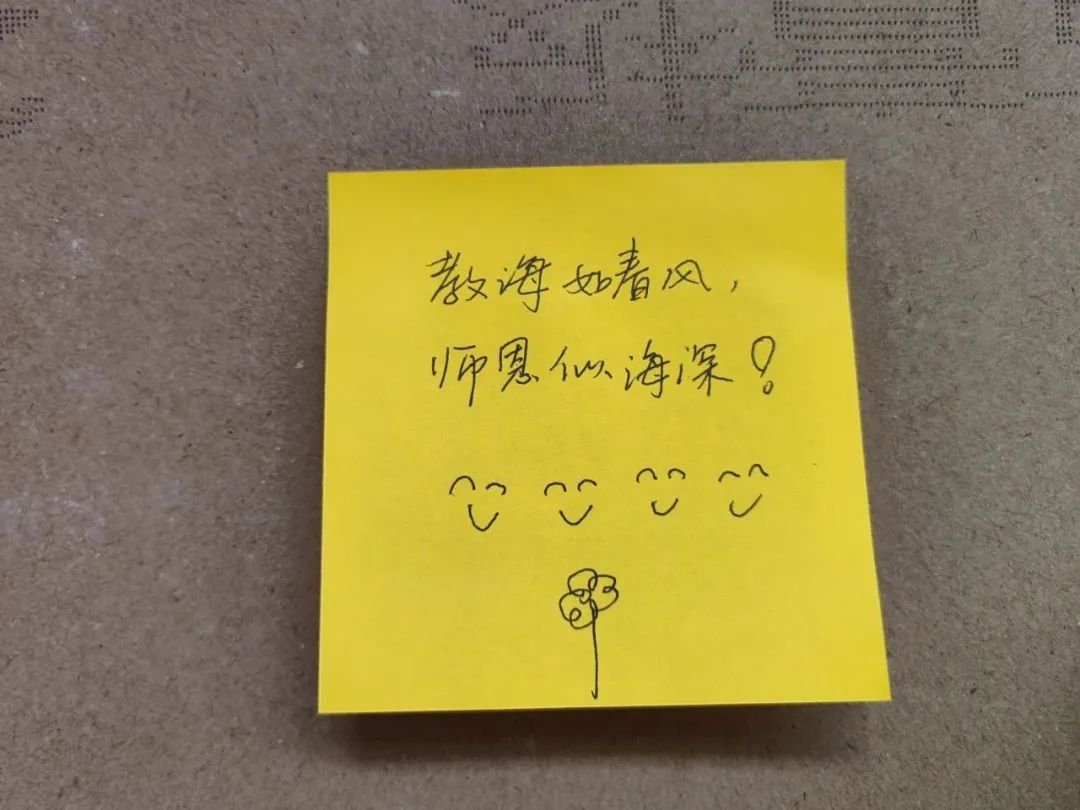 教诲如春风，
师恩似海深！